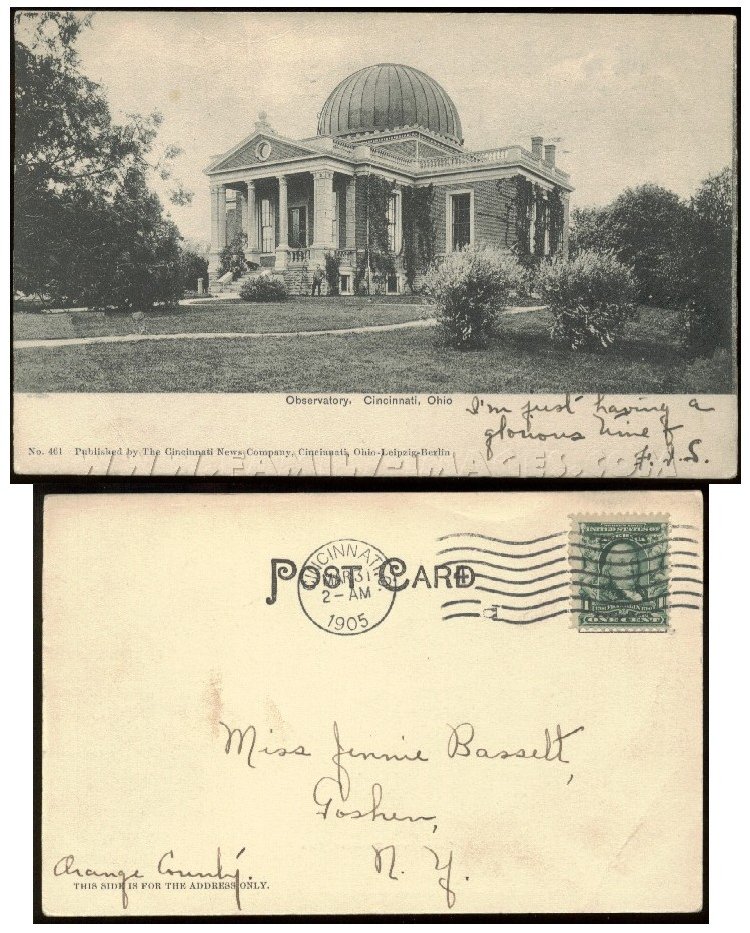 Observatory, Cincinnati, Ohio
I'm just having a
glorious time
No. 461 Published by The Cincinnati News Company, Cincinnati, Ohio-Leipzig-Berlin
WWW.FAMILYIMAGES.COM
POST CARD
CINCINNATI, O.
MAR 31
2-AM
1905
UNITED STATES OF
ONE CENT
Miss Jennie Bassett,
Goshen,
N. Y.
Orange County.
THIS SIDE IS FOR THE ADDRESS ONLY.